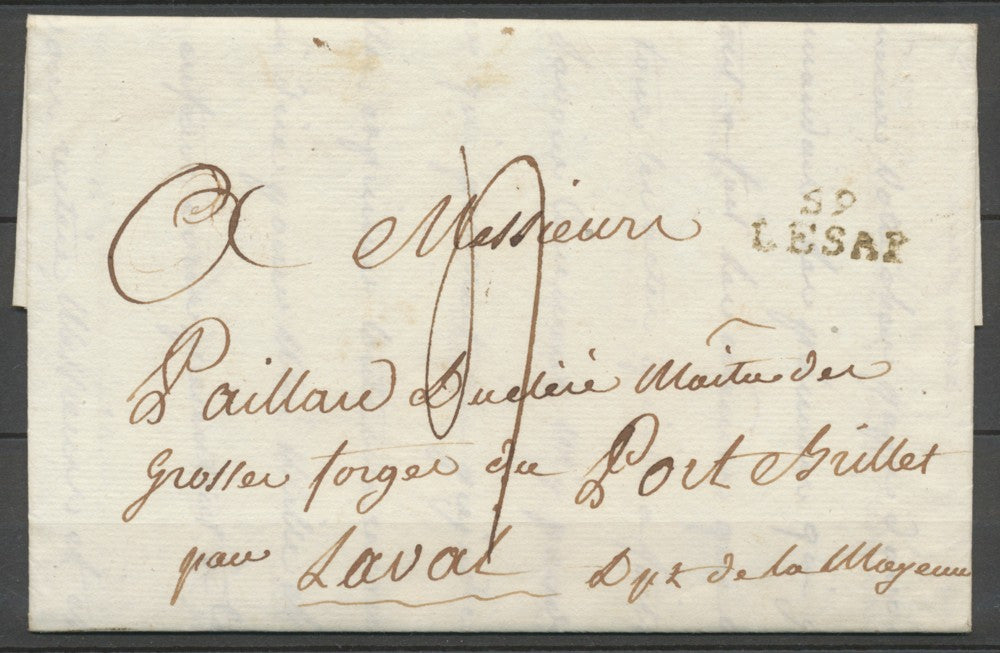 59
LESAP
A Messieurs
Paillard Ducléré Maître des
Grosses forges du Port Brillet
par Laval Dpt de la Mayenne